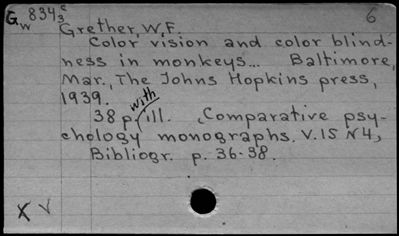 Gw 834, c3 6
Grether, W.F.
Color vision and color blind-
ness in monkeys... Baltimore,
Mar., The Johns Hopkins press,
1939.
38 p. with ill. (Comparative psy-
chology monographs. V.15 N4,
Bibliogr. p. 36-38.
X V